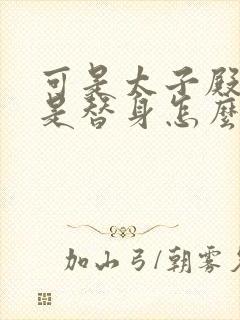 可是太子殿
是替身怎麼
加山弓/朝雾